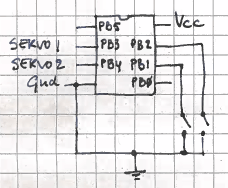 PB5 Vcc
SERVO 1 PB3 PB2
SERVO 2 PB4 PB1
Gnd PB0